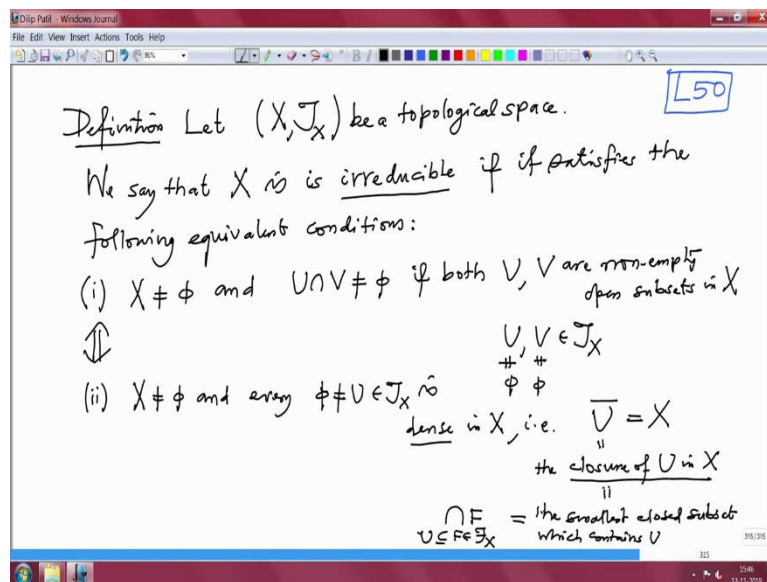 Dilip Patil - Windows Journal
File Edit View Insert Actions Tools Help
96%
L50
Definition Let (X, J_X) be a topological space.
We say that X is is irreducible if if satisfies the
following equivalent conditions:
(i) X ≠ φ and U∩V ≠ φ if both U, V are non-empty
open subsets in X
⇕
U, V ∈ J_X
≠ ≠
φ φ
(ii) X ≠ φ and every φ ≠ U ∈ J_X is
dense in X, i.e. U̅ = X
=
the closure of U in X
=
∩F = the smallest closed subset
U ⊆ F ∈ F_X which contains U
316/316
315
15:46
13-11-2019